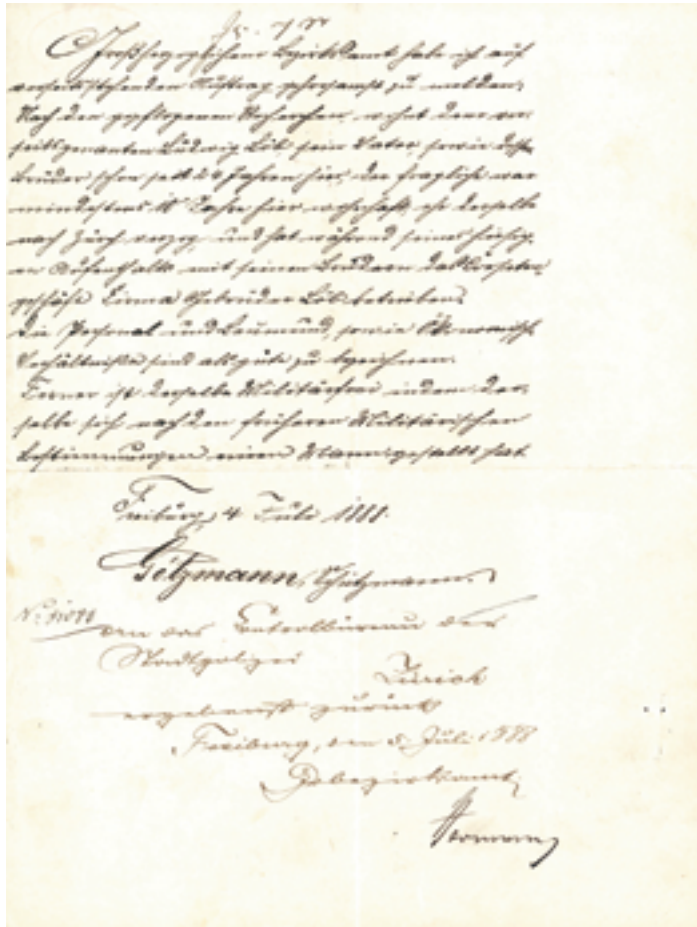 Großherzoglichem Bezirksamt habe ich auf
vorseitsstehenden Auftrag gehorsamst zu melden:
Nach den gepflogenen Recherchen, wohnt der vor-
seitsgenannten Ludwig Löb, sein Vater, sowie dessen
Brüder schon seit 24 Jahren hier, der fragliche war
mindestens 10 Jahre hier wohnhaft, ehe derselbe
nach Zürch verzog, und hat während seines hiesig-
en Aufenthalts mit seinen Brüdern das
geschäft Firma Gebrüder Löb betrieben.
Die Personal und Leumund, sowie Ökonomische
Verhältnisse sind als gute zu bezeichnen.
Ferner ist derselbe Militärfrei indem der-
selbe sich nach den früheren Militärischen
Bestimmungen einen Mann gestellt hat
Freiburg, 4 Juli 1888.
Götzmann, Schutzmann.
An das Controlbüreau der
Stadtpolizei
Zürich
ergebenst zurück
Freiburg, den 5. Juli 1888
Gr. Bezirksamt